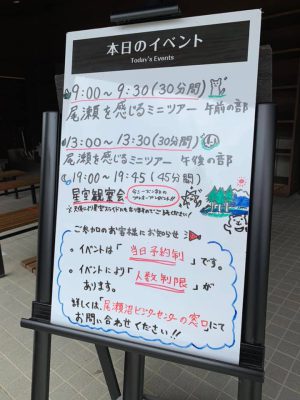 本日のイベント
Today's Events
9:00～9:30(30分間)
尾瀬を感じるミニツアー 午前の部
13:00～13:30(30分間)
尾瀬を感じるミニツアー 午後の部
19:00～19:45(45分間)
星空観察会
ご参加のお客様にお知らせ
・イベントは「当日予約制」です。
・イベントにより「人数制限」が
あります。
詳しくは、「尾瀬沼ビジターセンターの窓口」にて
お問い合わせください!!